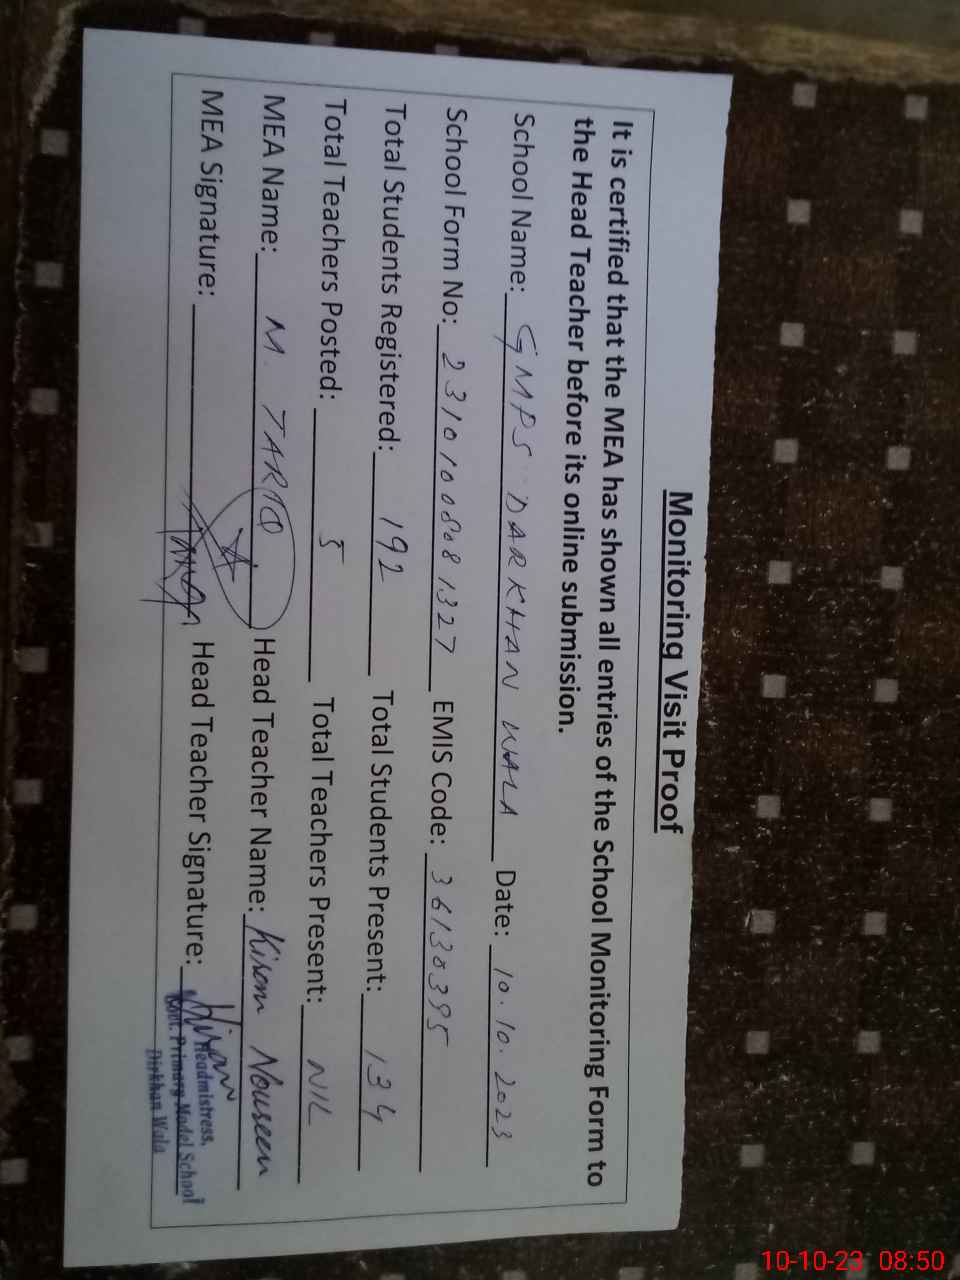 Monitoring Visit Proof
It is certified that the MEA has shown all entries of the School Monitoring Form to
the Head Teacher before its online submission.
School Name: GMPS DARKHAN WALA Date: 10.10.2023
School Form No: 23101008081327 EMIS Code: 36130395
Total Students Registered: 192 Total Students Present: 134
Total Teachers Posted: 5 Total Teachers Present: NIL
MEA Name: M. TARIQ Head Teacher Name: Kiran Nouseen
MEA Signature: Tariq Head Teacher Signature: Kiran
Headmistress,
Govt. Primary Model School
Dirkhan Wala
10-10-23 08:50